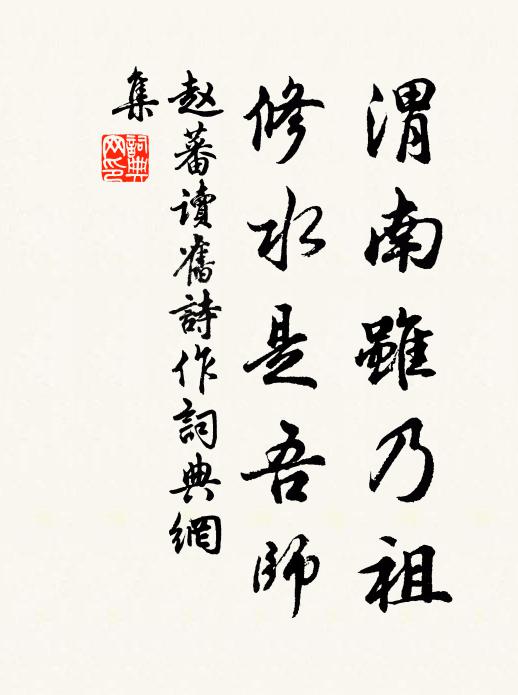 渭南雖乃祖
修水是吾師
赵蕃讀舊詩作詞典網
集
詞典
网印